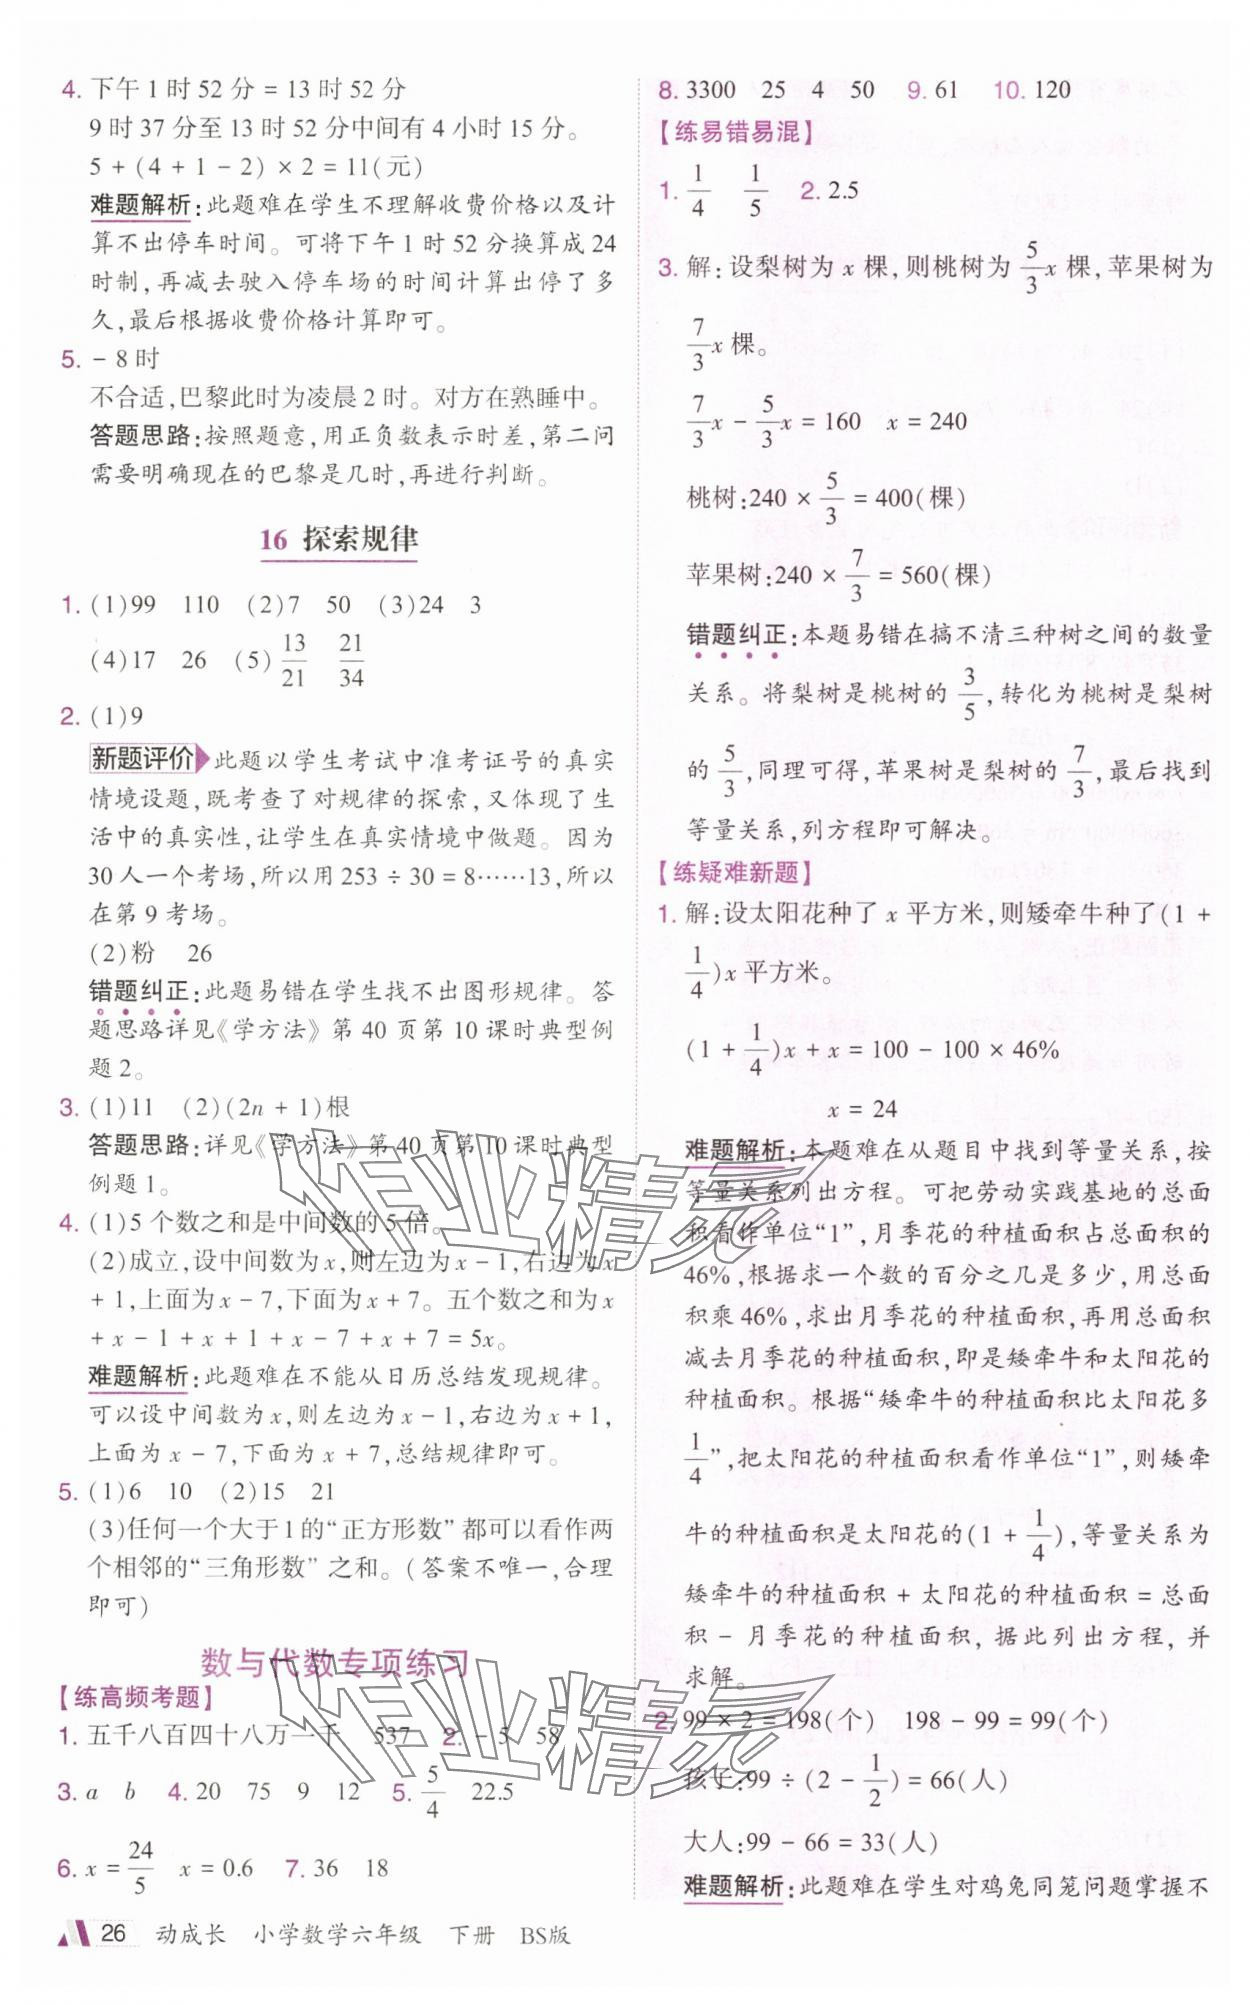 4. 下午1时52分=13时52分
9时37分至13时52分中间有4小时15分。
5+(4+1-2)×2=11(元)
难题解析:此题难在学生不理解收费价格以及计
算不出停车时间。可将下午1时52分换算成24
时制,再减去驶入停车场的时间计算出停了多
久,最后根据收费价格计算即可。
5. -8时
不合适,巴黎此时为凌晨2时。对方在熟睡中。
答题思路:按照题意,用正负数表示时差,第二问
需要明确现在的巴黎是几时,再进行判断。
16 探索规律
1. (1)99 110 (2)7 50 (3)24 3
(4)17 26 (5)13/21 21/34
2. (1)9
新题评价 此题以学生考试中准考证号的真实
情境设题,既考查了对规律的探索,又体现了生
活中的真实性,让学生在真实情境中做题。因为
30人一个考场,所以用253÷30=8……13,所以
在第9考场。
(2)粉 26
错题纠正:此题易错在学生找不出图形规律。答
题思路详见《学方法》第40页第10课时典型例
题2。
3. (1)11 (2)(2n+1)根
答题思路:详见《学方法》第40页第10课时典型
例题1。
4. (1)5个数之和是中间数的5倍。
(2)成立,设中间数为x,则左边为x-1,右边为x
+1,上面为x-7,下面为x+7。五个数之和为x
+x-1+x+1+x-7+x+7=5x。
难题解析:此题难在不能从日历总结发现规律。
可以设中间数为x,则左边为x-1,右边为x+1,
上面为x-7,下面为x+7,总结规律即可。
5. (1)6 10 (2)15 21
(3)任何一个大于1的“正方形数”都可以看作两
个相邻的“三角形数”之和。(答案不唯一,合理
即可)
数与代数专项练习
【练高频考题】
1. 五千八百四十八万一千 537 2. -5 58
3. a b 4. 20 75 9 12 5. 5/4 22.5
6. x=24/5 x=0.6 7. 36 18
8. 3300 25 4 50 9. 61 10. 120
【练易错易混】
1. 1/4 1/5 2. 2.5
3. 解:设梨树为x棵,则桃树为5/3x棵,苹果树为
7/3x棵。
7/3x-5/3x=160 x=240
桃树:240×5/3=400(棵)
苹果树:240×7/3=560(棵)
错题纠正:本题易错在搞不清三种树之间的数量
关系。将梨树是桃树的3/5,转化为桃树是梨树
的5/3,同理可得,苹果树是梨树的7/3,最后找到
等量关系,列方程即可解决。
【练疑难新题】
1. 解:设太阳花种了x平方米,则矮牵牛种了(1+
1/4)x平方米。
(1+1/4)x+x=100-100×46%
x=24
难题解析:本题难在从题目中找到等量关系,按
等量关系列出方程。可把劳动实践基地的总面
积看作单位“1”,月季花的种植面积占总面积的
46%,根据求一个数的百分之几是多少,用总面
积乘46%,求出月季花的种植面积,再用总面积
减去月季花的种植面积,即是矮牵牛和太阳花的
种植面积。根据“矮牵牛的种植面积比太阳花多
1/4”,把太阳花的种植面积看作单位“1”,则矮牵
牛的种植面积是太阳花的(1+1/4),等量关系为
矮牵牛的种植面积+太阳花的种植面积=总面
积-月季花的种植面积,据此列出方程,并
求解。
2. 99×2=198(个) 198-99=99(个)
孩子:99÷(2-1/2)=66(人)
大人:99-66=33(人)
难题解析:此题难在学生对鸡兔同笼问题掌握不
26 动成长 小学数学六年级 下册 BS版
作业精灵
作业精灵